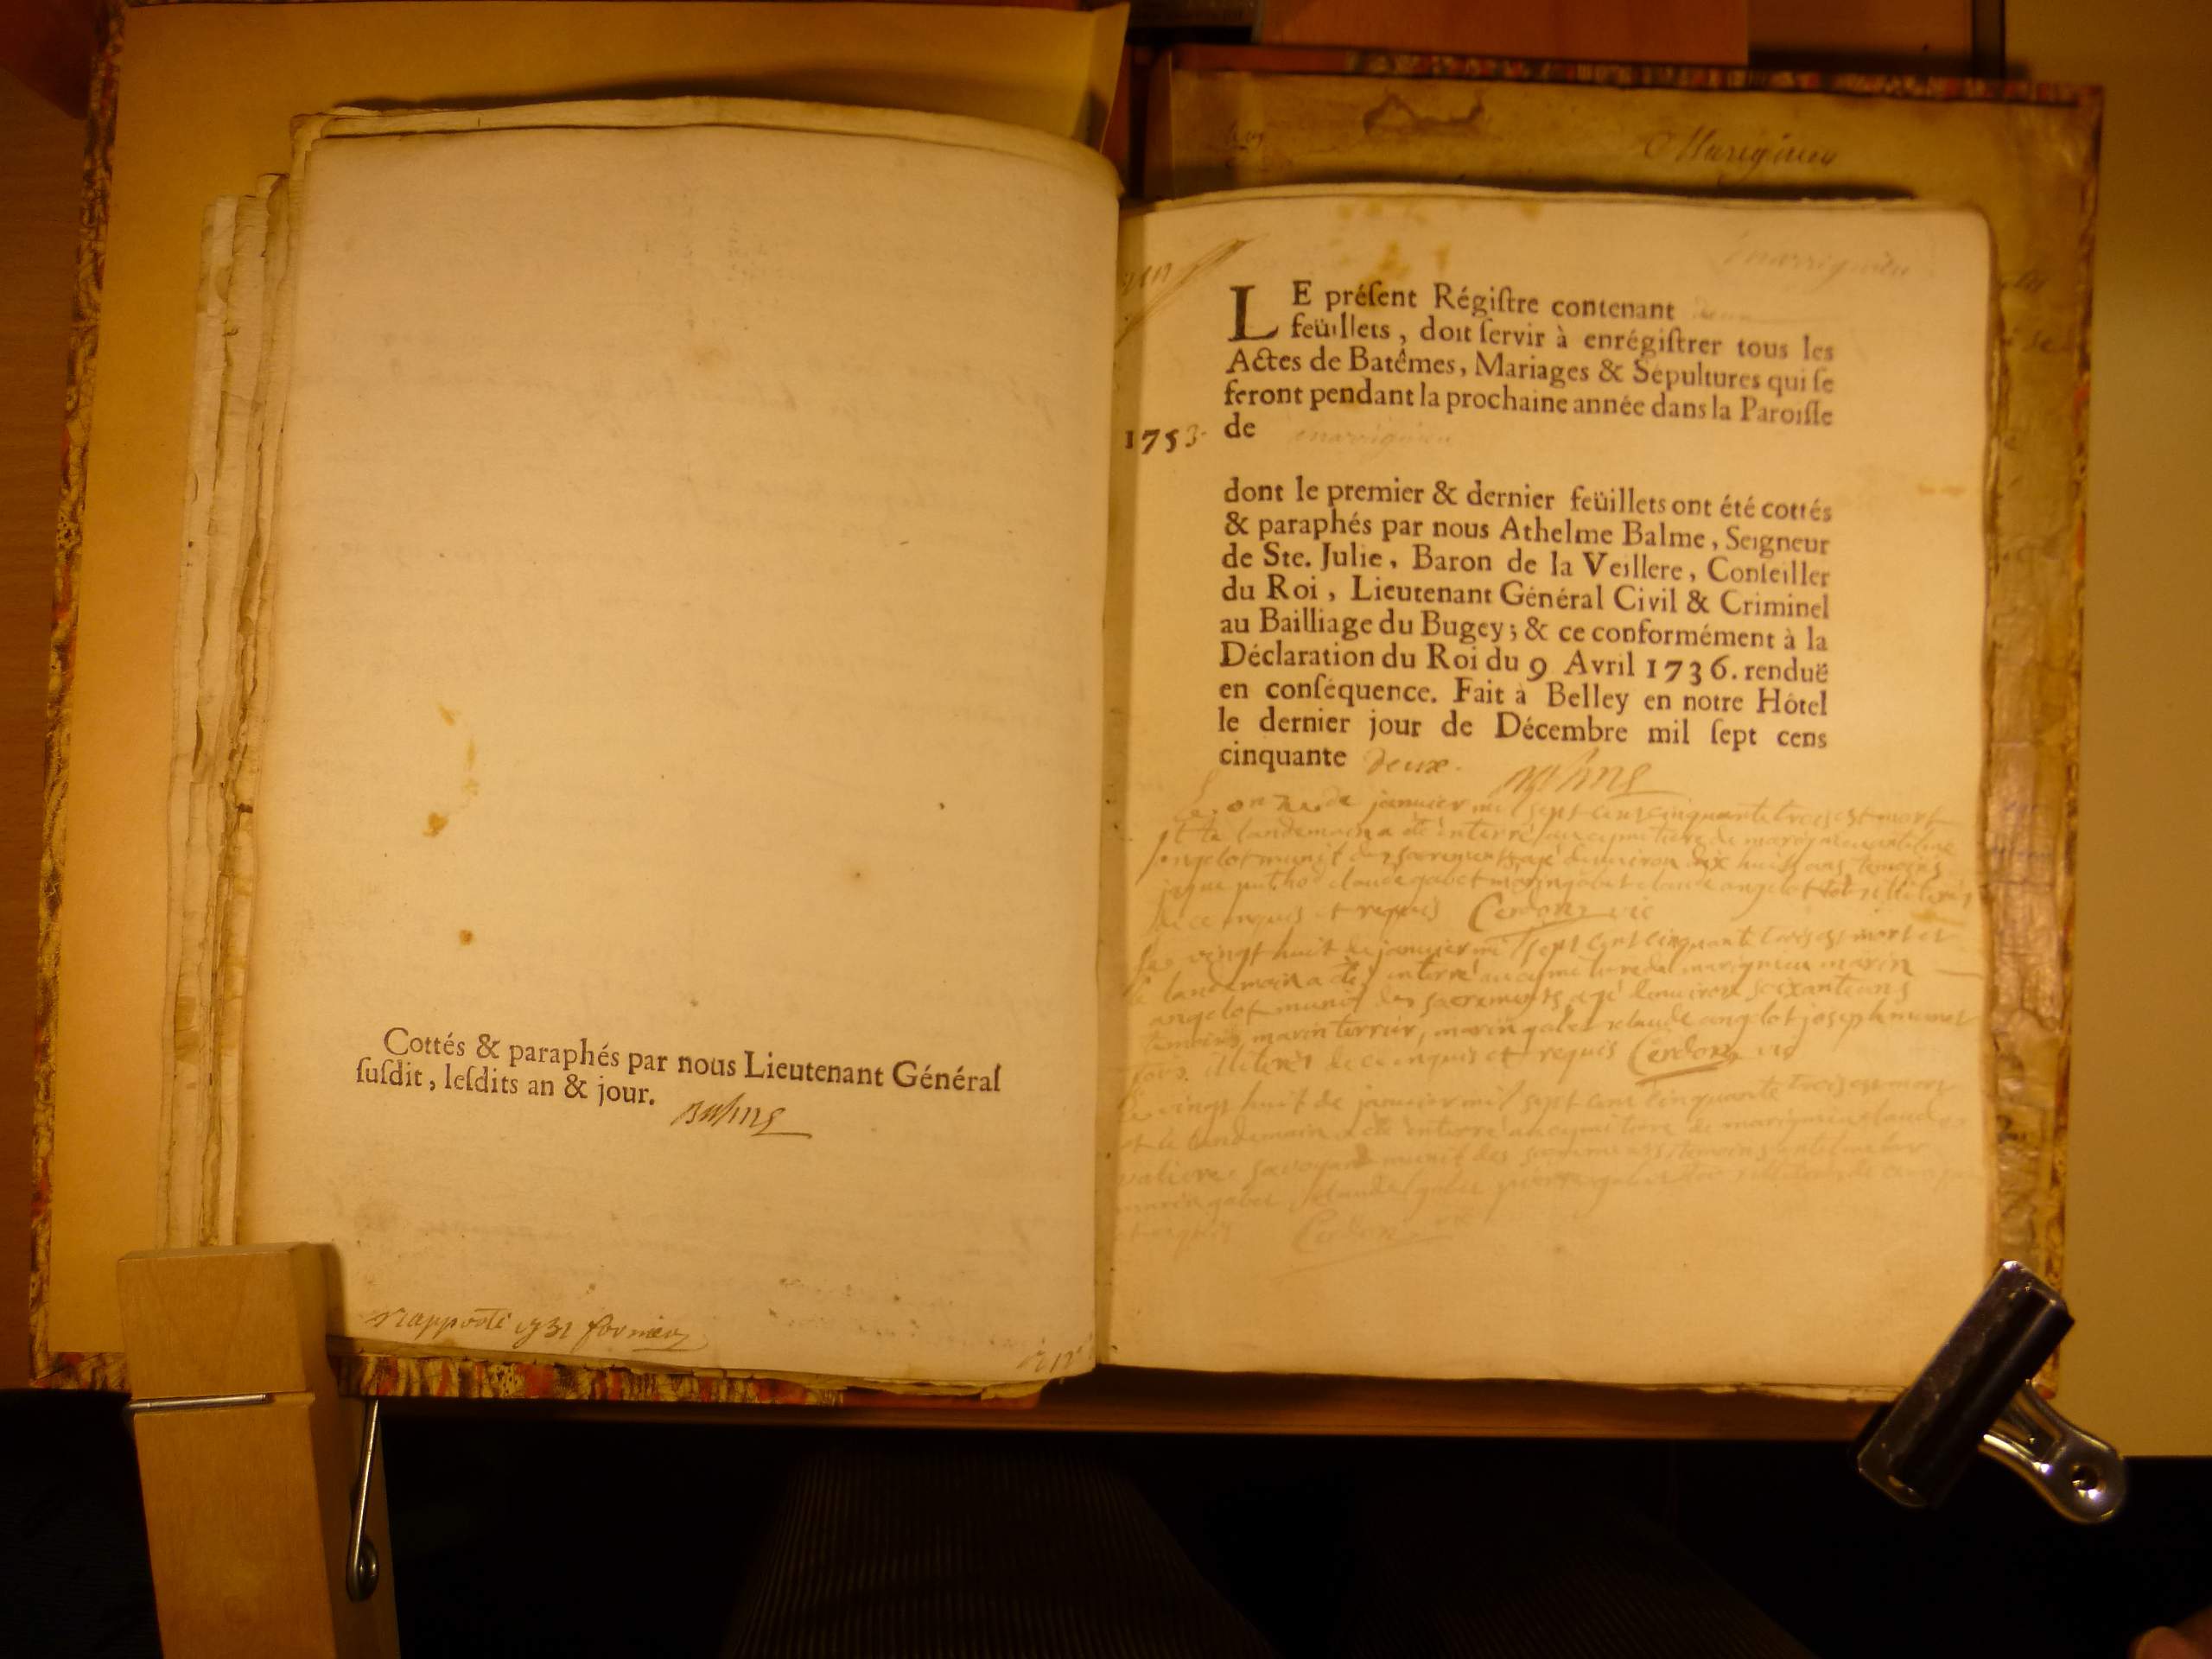 Cottés & paraphés par nous Lieutenant Général
ſuſdit, leſdits an & jour.
Balme
rapporté
Marignieu
marrignieu
LE préſent Régiſtre contenant
feüillets, doit ſervir à enrégiſtrer tous les
Actes de Batêmes, Mariages & Sépultures qui ſe
feront pendant la prochaine année dans la Paroiſſe
1753. de marrignieu
dont le premier & dernier feüillets ont été cottés
& paraphés par nous Athelme Balme, Seigneur
de Ste. Julie, Baron de la Veillere, Conſeiller
du Roi, Lieutenant Général Civil & Criminel
au Bailliage du Bugey; & ce conformément à la
Déclaration du Roi du 9 Avril 1736. renduë
en conſéquence. Fait à Belley en notre Hôtel
le dernier jour de Décembre mil ſept cens
cinquante deux. Balme
Le onze de janvier mil sept cent cinquante trois est mort
et le landemain a été interré au cymitiere de marignieu
angelot munit des sacrements agé denviron dix huit ans temoins
jaque claude gabet marin gabet claude angelot tous illiterés
de ce enquis et requis Cerdon vic
Le vingt huit de janvier mil sept cent cinquante trois est mort et
le landemain a été interré au cymitiere de marignieu marin
angelot munit des sacrements agé denviron soixante ans
temoins marin terrier, marin gabet claude angelot joseph
tous illiterés de ce enquis et requis Cerdon vic
Le vingt huit de janvier mil sept cent cinquante trois est mort
et le landemain a été interré au cymitiere de marignieu claude
savoyard munit des sacrements temoins
marin gabet claude gabet pierre gabet
et requis Cerdon vic